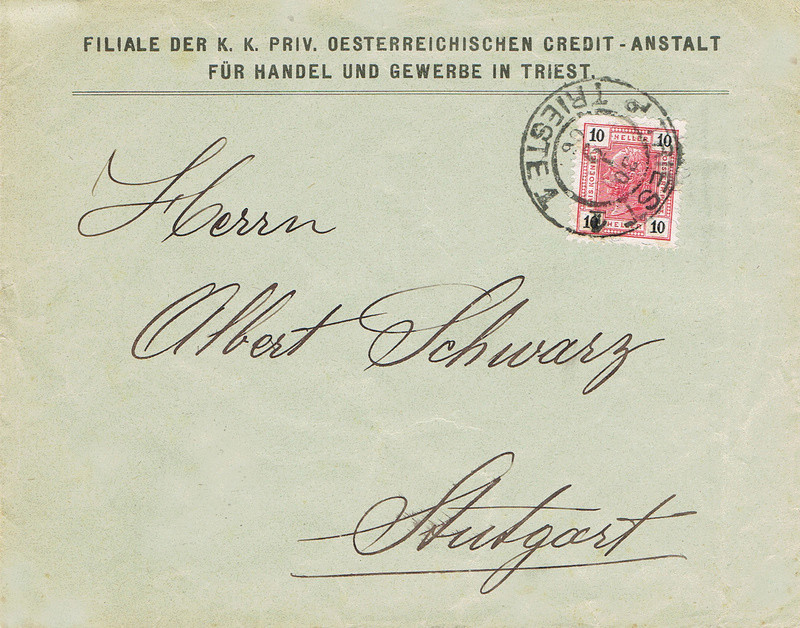 FILIALE DER K. K. PRIV. OESTERREICHISCHEN CREDIT-ANSTALT
FÜR HANDEL UND GEWERBE IN TRIEST.
TRIESTE
10 HELLER 10
10 HELLER 10
Herrn
Albert Schwarz
Stuttgart